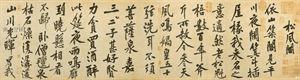 松風閣
依山築閣見平
川夜闌箕斗插
屋椽我來名之
意適然老松魁
梧數百年斧斤
所赦今參天
風鳴媧皇五十
弦洗耳不須菩
薩泉嘉二
三子甚好賢
力貧買酒醉
此筵夜雨鳴廊
到曉懸相看
不歸臥僧氈泉
枯石燥復潺湲
山川光輝爲我